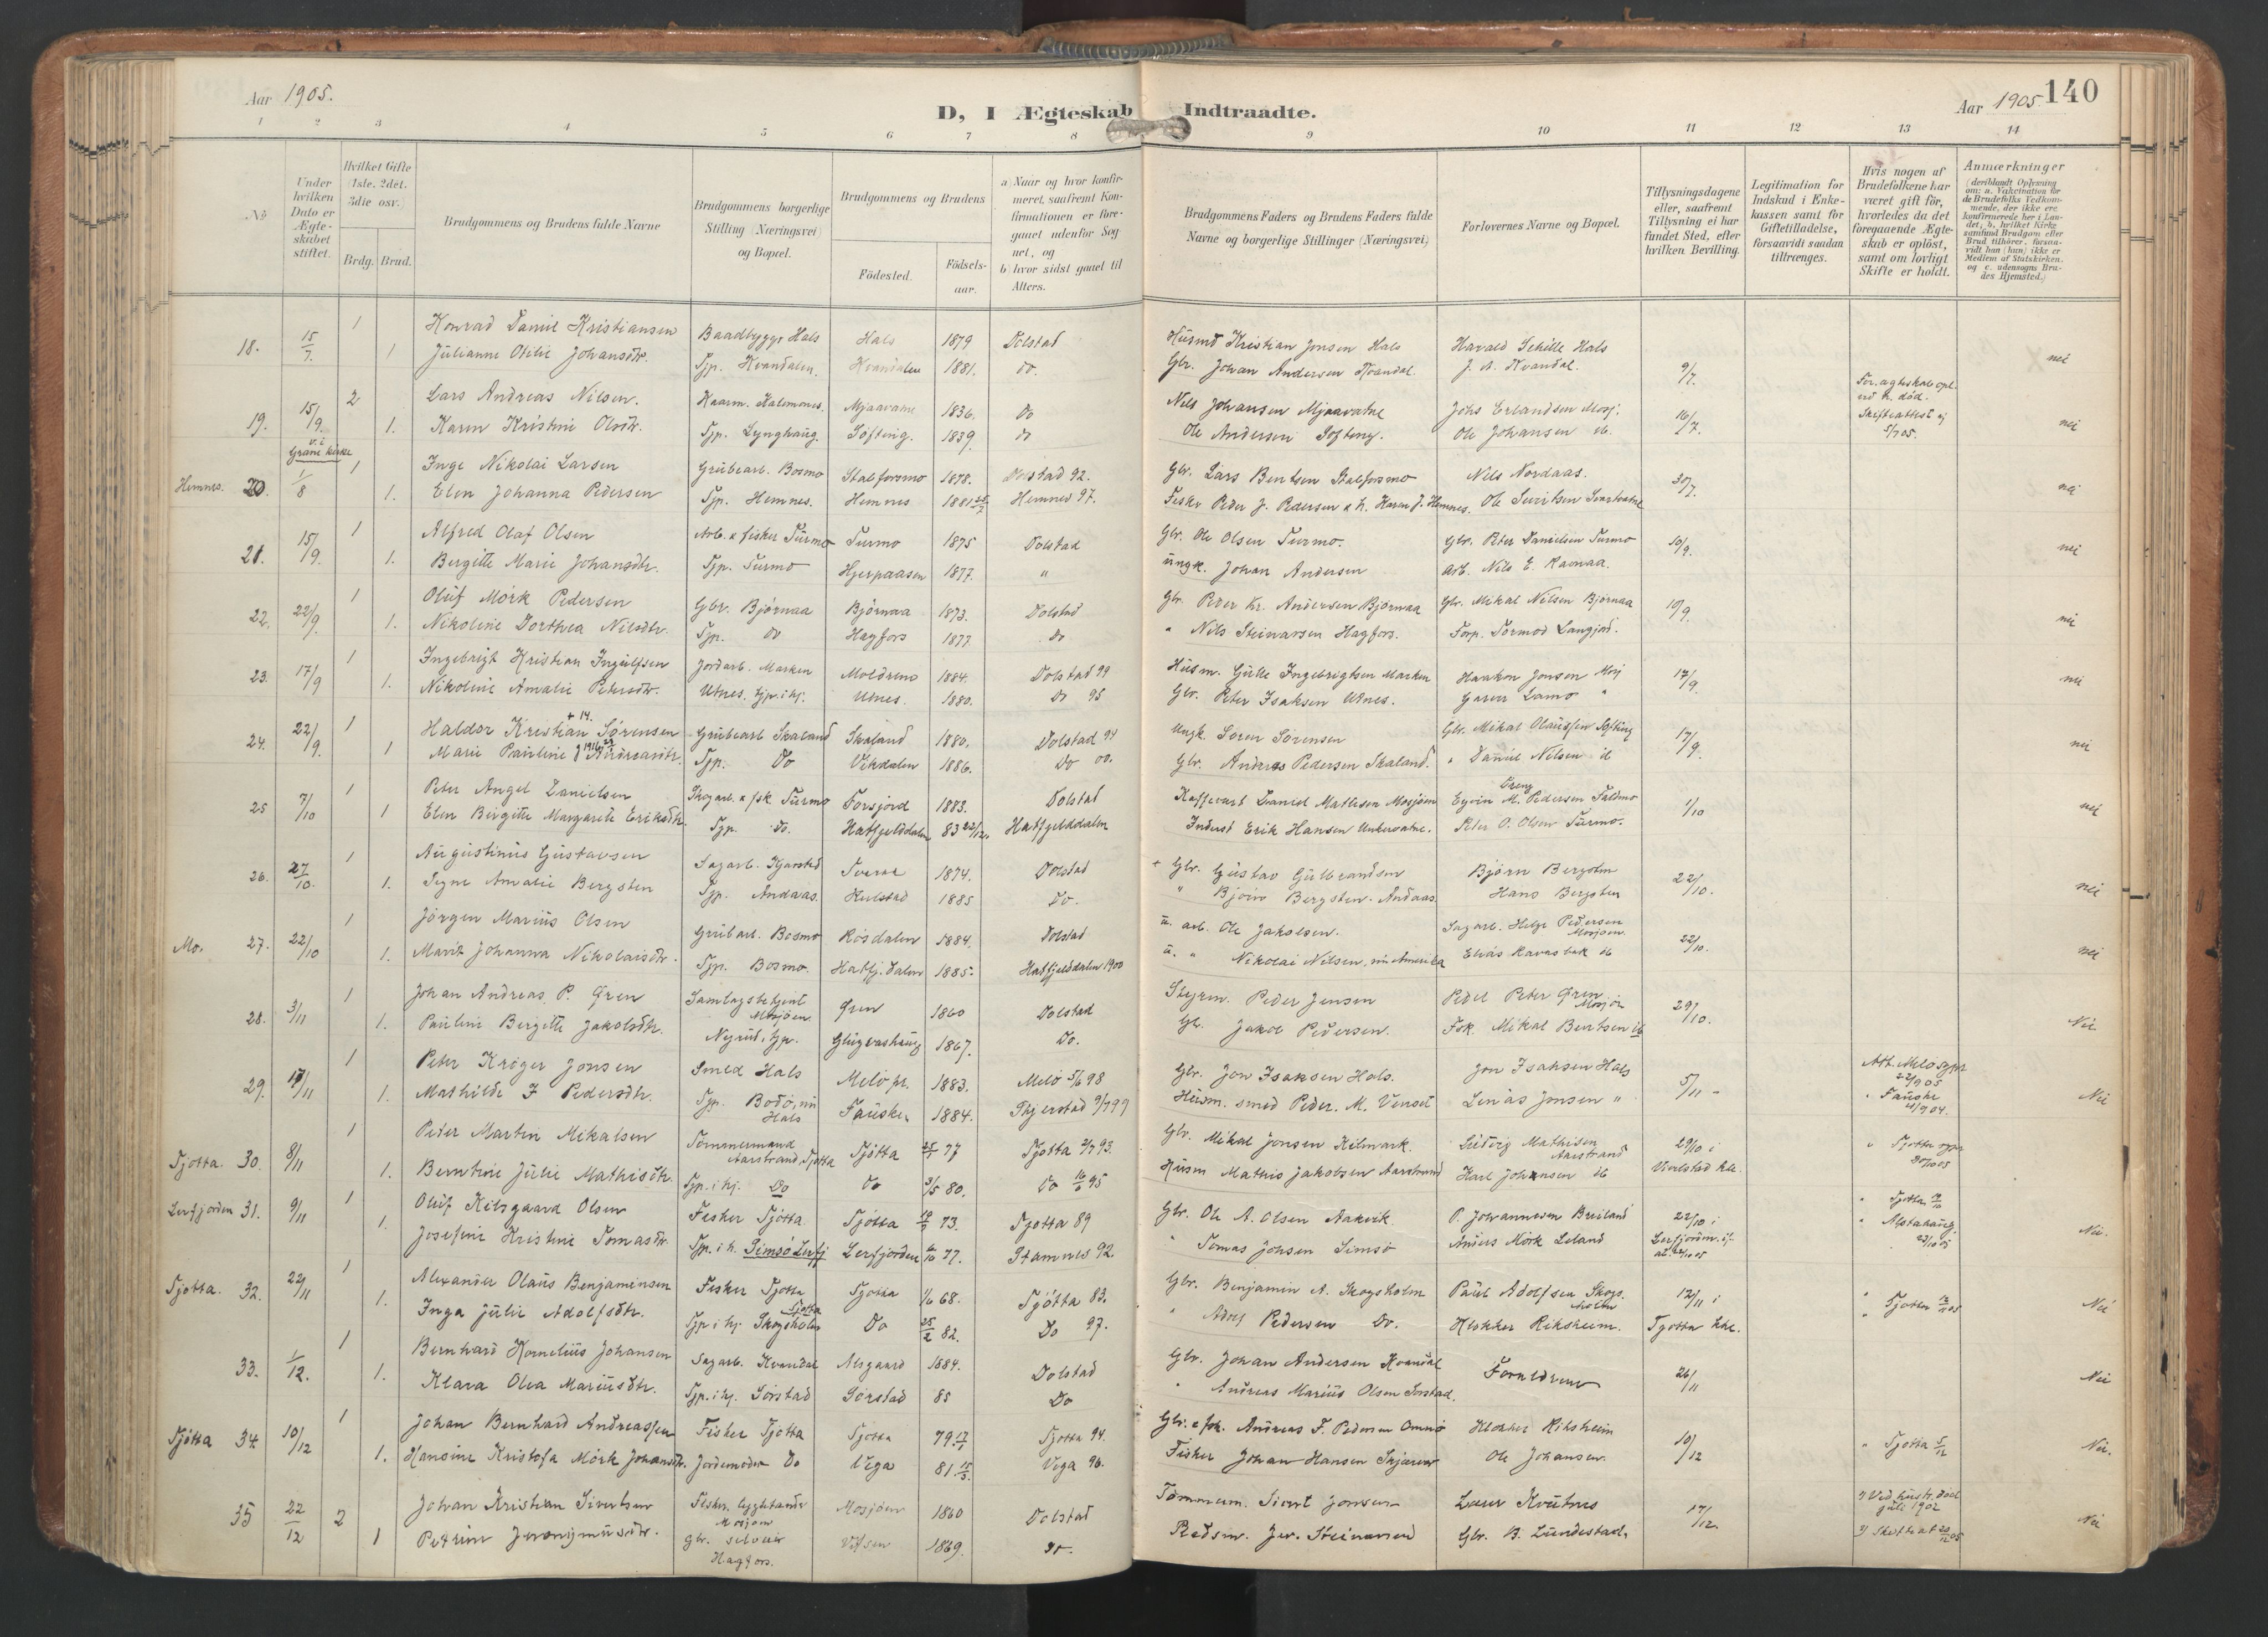 Aar 1905.
D, I Ægteskab Indtraadte.
Aar 1905. 140
1 2 3 4 5 6 7 8 9 10 11 12 13 14
No
Under hvilken Dato er Ægteskabet stiftet.
Hvilket Gifte (1ste, 2det, 3die osv.)
Brdg. Brud.
Brudgommens og Brudens fulde Navne
Brudgommens borgerlige Stilling (Næringsvei) og Bopæl.
Brudgommens og Brudens
Födested.
Födselsaar.
a) Naar og hvor konfirmeret, saafremt Konfirmationen er foregaaet udenfor Sognet, og
b) hvor sidst gaaet til Alters.
Brudgommens Faders og Brudens Faders fulde Navne og borgerlige Stillinger (Næringsvei)
Forlovernes Navne og Bopæl.
Tillysningsdagene eller, saafremt Tillysning ei har fundet Sted, efter hvilken Bevilling.
Legitimation for Indskud i Enkekassen samt for Giftetilladelse, forsaavidt saadan tiltrænges.
Hvis nogen af Brudefolkene har været gift för, hvorledes da det foregaaende Ægteskab er oplöst, samt om lovligt Skifte er holdt.
Anmærkninger
(deriblandt Oplysning om: a. Vakcination for de Brudefolks Vedkommende, der ikke ere konfirmerede her i Landet; b. hvilket Kirkesamfund Brudgom eller Brud tilhörer, forsaavidt han (hun) ikke er Medlem af Statskirken, og c. udensogns Brudes Hjemsted.)
18. 15/7. 1 Konrad Daniel Kristiansen Baadbygger Hals Hals 1879 Dolstad Husmd Kristian Jonsen Hals Harald Schille Hals 9/7. nei
1 Julianne Otilie Johansdtr. Tjp. Kvandalen. Kvandalen 1881. do. Gbr. Johan Andersen Kvandal. J. A. Kvandal.
19. 15/9. 2 Lars Andreas Nilsen. Kaarm. Kalmones. Mjaavatne 1836. Do Nils Johansen Mjaavatne Johs Erlandsen Mosj. 16/7. For. ægteskab opl. ved h. död. Skifteattest 5/7 05. nei
v. i Grane kirke
1. Karen Kristine Olsdtr. Tjp. Lynghaug. Søfting. 1839. do Ole Andersen Softing. Ole Johansen ib.
Hemnes. 20. 1/8 1 Inge Nikolai Larsen Grubearb. Bosmo Stalforsmo 1878. Dolstad 92. Gbr. Lars Bentsen Stalforsmo Nils Nordaas. 30/7. nei
1. Elen Johanna Pedersen Tjp. Hemnes. Hemnes 1881 Hemnes 97. Fisker Peder J. Pedersen & h. Karen J. Hemnes. Ole Sivertsen Svartvatne
21. 15/9. 1 Alfred Olaf Olsen Arb. & fisker Turmo Turmo 1875 Dolstad Gbr. Ole Olsen Turmo. Gbr. Peter Danielsen Turmo 10/9. nei
1. Bergitte Marie Johansdtr. Tjp. Turmo Hjerpaasen 1877. " ungk. Johan Andersen Arb. Nils E. Ravnaa.
22. 22/9. 1 Oluf Mörk Pedersen Gbr. Björnaa Björnaa 1873. Dolstad Gbr. Peder Kr. Andersen Björnaa Gbr. Mikal Nilsen Björnaa 10/9. nei
1. Nikoline Dorthea Nilsdtr. Tjp. do Hagfors 1877 do " Nils Steinarsen Hagfors. Forp. Tormod Langjord.
23. 17/9 1 Ingebrigt Kristian Ingulfsen Jordarb. Marken Moldrem 1884. Dolstad 99 Husm. Gulle Ingebrigtsen Marken Haakon Jonsen Mosj 17/9. nei
1. Nikoline Amalie Petersdtr. Utnes. tjp. i hj. Utnes. 1880. Do 95 Gbr. Peter Isaksen Utnes. Garver Lamo "
24. 22/9. 1 Haldor Kristian Sørensen Grubearb Skaland Skaland 1880. Dolstad 94 Ungk. Soren Sørensen Gbr. Mikal Olaussen Softing 17/9. nei
1 Marie Pauline Andreasdtr. Tjp. Do Vikdalen 1886. Do 00. Gbr. Andreas Pedersen Skaland. " Daniel Nilsen ib
25 7/10 1 Peter Angel Danielsen Skogarb. & fsk Turmo Forsjord 1883. Dolstad Kaffevært Daniel Mathisen Mosjöen Dreng Eyvin M. Pedersen Fallmo 1/10 nei
1 Elen Birgitte Margarete Eriksdtr. Tjp. Do. Hatfjelddalen 83 22/12. Hatfjelddalen Inderst Erik Hansen Unkervatne. Peter O. Olsen Turmo.
26. 27/10. 1 Augustinus Gustavsen Sagarb. Kjærstad Tveraa 1874. Dolstad + Gbr. Gustav Gulbrandsen Björn Bergsten 22/10. nei
1. Signe Amalie Bergsten Tjp. Andaas. Kulstad 1885 Do. " Björn Bergsten. Andaas. Hans Bergsten
Mo. 27. 22/10 1 Jörgen Marius Olsen Grubarb. Bosmo Rösdalen 1884. Dolstad u. arb. Ole Jakobsen. Sagarb. Helge Pedersen Mosjøen. 22/10. nei
1. Marit Johanna Nikolaisdtr. Tjp. Bosmo. Hatfj. dalen 1885. Hatfjelddalen 1900 u. " Nikolai Nilsen, nu Amerika Elias Ravasbak ib
28. 3/11 1 Johan Andreas P. Øren Samlagsbetjent Mosjöen Øren 1860 Dolstad Styrm. Peder Jensen Pedel Peter Øren Mosjöen 29/10. Nei.
1. Pauline Bergitte Jakobsdtr. Nyrud, tjp. Glugvashaug 1867. Do. Gbr. Jakob Pedersen. Fsk. Mikal Bentsen ib
29. 17/11 1 Peter Krøger Jonsen Smed Hals Melö pr. 1883. Melö 5/6 98 Gbr. Jon Isaksen Hals. Jon Isaksen Hals 5/11 - Att. Melö sgpr 22/9 05 Nei
1. Mathilde J Pedersdtr. Tjp. Bodö, nu Hals Fauske 1884. Skjerstad 9/7 99 Husm. smed Peder. M. Venset Linas Jonsen " " Fauske 4/9 04.
Tjøtta. 30. 8/11 1 Peder Martin Mikalsen Tömmermand Aarstrand, Tjøtta Tjøtta 77 Tjøtta 2/7 93. Gbr. Mikal Jonsen Kilmark. Ludvig Mathisen Aarstrand 29/10 i " Tjøtta sgpr 30/10 05
1. Berntine Julie Mathisdtr. Tjp. i hj. Do do 3/5 80. Do 95 Husm Mathis Jakobsen Aarstrand Karl Johansen ib Vivelstad kke.
Lerfjorden 31. 9/11 1 Oluf Kilsgaard Olsen Fisker Tjøtta Tjøtta 73. Tjøtta 89 Gbr. Ole A. Olsen Aakvik. P. Johannesen Breiland 22/10 i " Tjøtta Nei.
1. Josefine Kristine Tomasdtr. Tjp. i h. Simsø Lerfj Lerfjorden 77. Stamnes 92. " Tomas Johsen Simsö Anders Mörk Leland Lerfjorden " Alstahaug
Tjøtta. 32. 22/11 1 Alexander Olaus Benjaminsen Fisker Tjøtta Tjøtta 1/6 68. Tjøtta 83. Gbr. Benjamin A. Skogsholm Paul Adolfsen Skogsholm 12/11 i " Tjøtta Nei
1. Inga Julie Adolfsdtr. Tjp i hj. Skogsholm Tjøtta Do 25/2 82. Do 97. " Adolf Pedersen Do. Klokker Riksheim. Tjøtta kke.
33. 1/12. 1 Bernhard Kornelius Johansen Sagarb. Kvandal Alsgaard 1884. Dolstad Gbr. Johan Andersen Kvandal Forældrene 26/11 Nei
1. Klara Olea Mariusdtr. Tjp. i hj. Sörstad Sörstad 85 Do " Andreas Marius Olsen Sorstad.
Tjøtta 34. 10/12 1 Johan Bernhard Andreassen Fisker Tjøtta Tjøtta 79. Tjøtta 94. Gbr. & fsk. Andreas F. Pedersen Omnø Klokker Riksheim 10/12 " Tjøtta Nei.
1. Hansine Kristofa Mörk Johansdtr. Jordemoder Do Vega 81 Vega 96. Fisker Johan Hansen Skjærvær Ole Johansen.
35 22/12 2 Johan Kristian Sivertsen Fisker, Mosjøen Mosjöen 1860 Dolstad Tømmerm. Sivert Jonsen Lærer Kvitnes 17/12. 1) Ved hustr. död juli 1902 Nei
1 Petrine Jeronymusdtr. Hagfors. Vefsen 1869. do. Rødsm. Jer. Steinarsen Gbr. B. Lundestad. 2) Skifteat